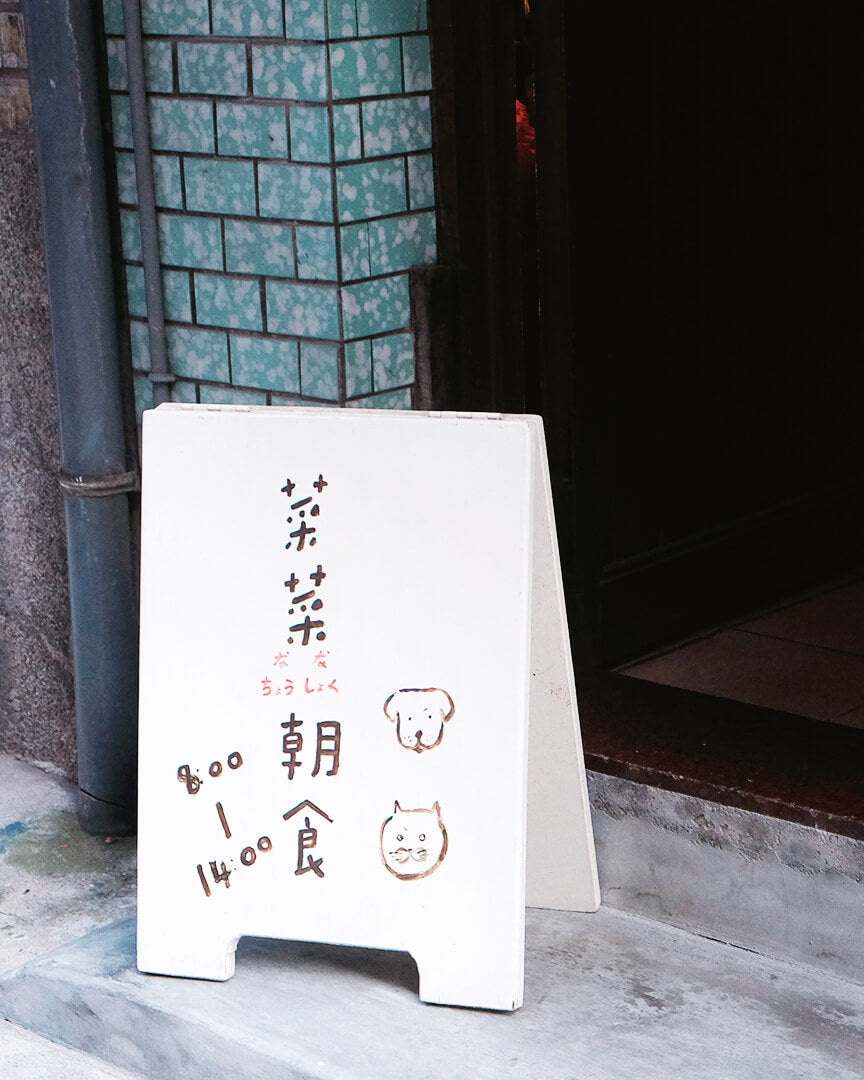 菜菜
なな
ちょうしょく
朝食
8:00
|
14:00